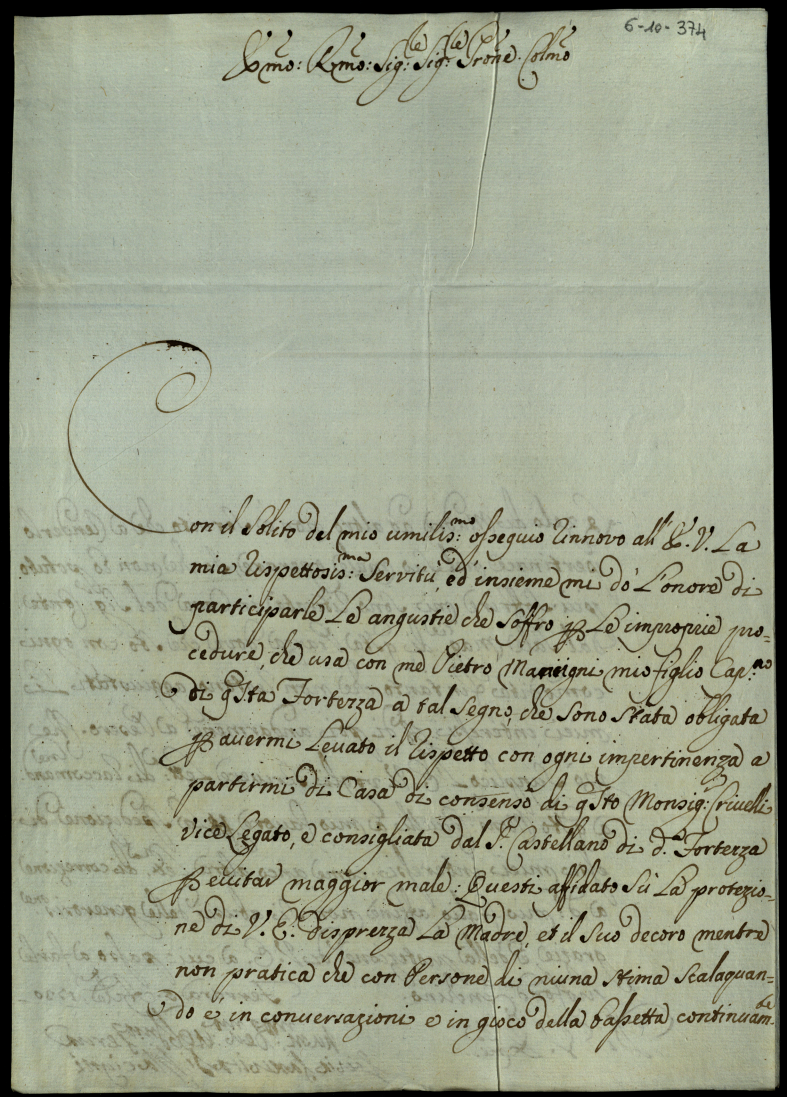 6-10-374
Ecc.mo: Rmo: Sig:re Sig:re Prone Colmo
Con il solito del mio umilis:mo ossequio rinnovo all' E. V. La
mia rispettosis:ma servitù, ed' insieme mi dò L'onore di
participarle Le angustie che soffro p Le improprie pro=
cedure, che usa con me Pietro mio figlio Cap:no
di q.sta Fortezza a tal segno, che sono stata obligata
p avermi Levato il rispetto con ogni impertinenza a
partirmi di Casa di consenso di q.sto Monsig:r Crivelli
vice Legato, e consigliata dal S.r Castellano di d.a Fortezza
p evitar maggior male: Questi affidato sù La protezio=
ne di V. E. disprezza La Madre, et il suo decoro mentre
non pratica che con Persone di niuna stima scialaquan=
do e in conversazioni e in gioco della bassetta continuam.te